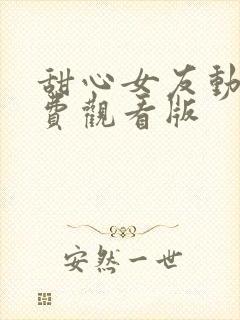 甜心女友動
費觀看版
安然一世